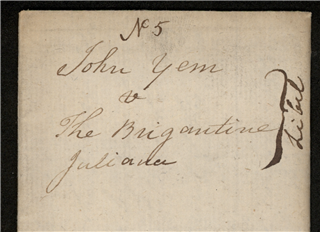 No 5
John Yem
v
The Brigantine
Juliana
Libel